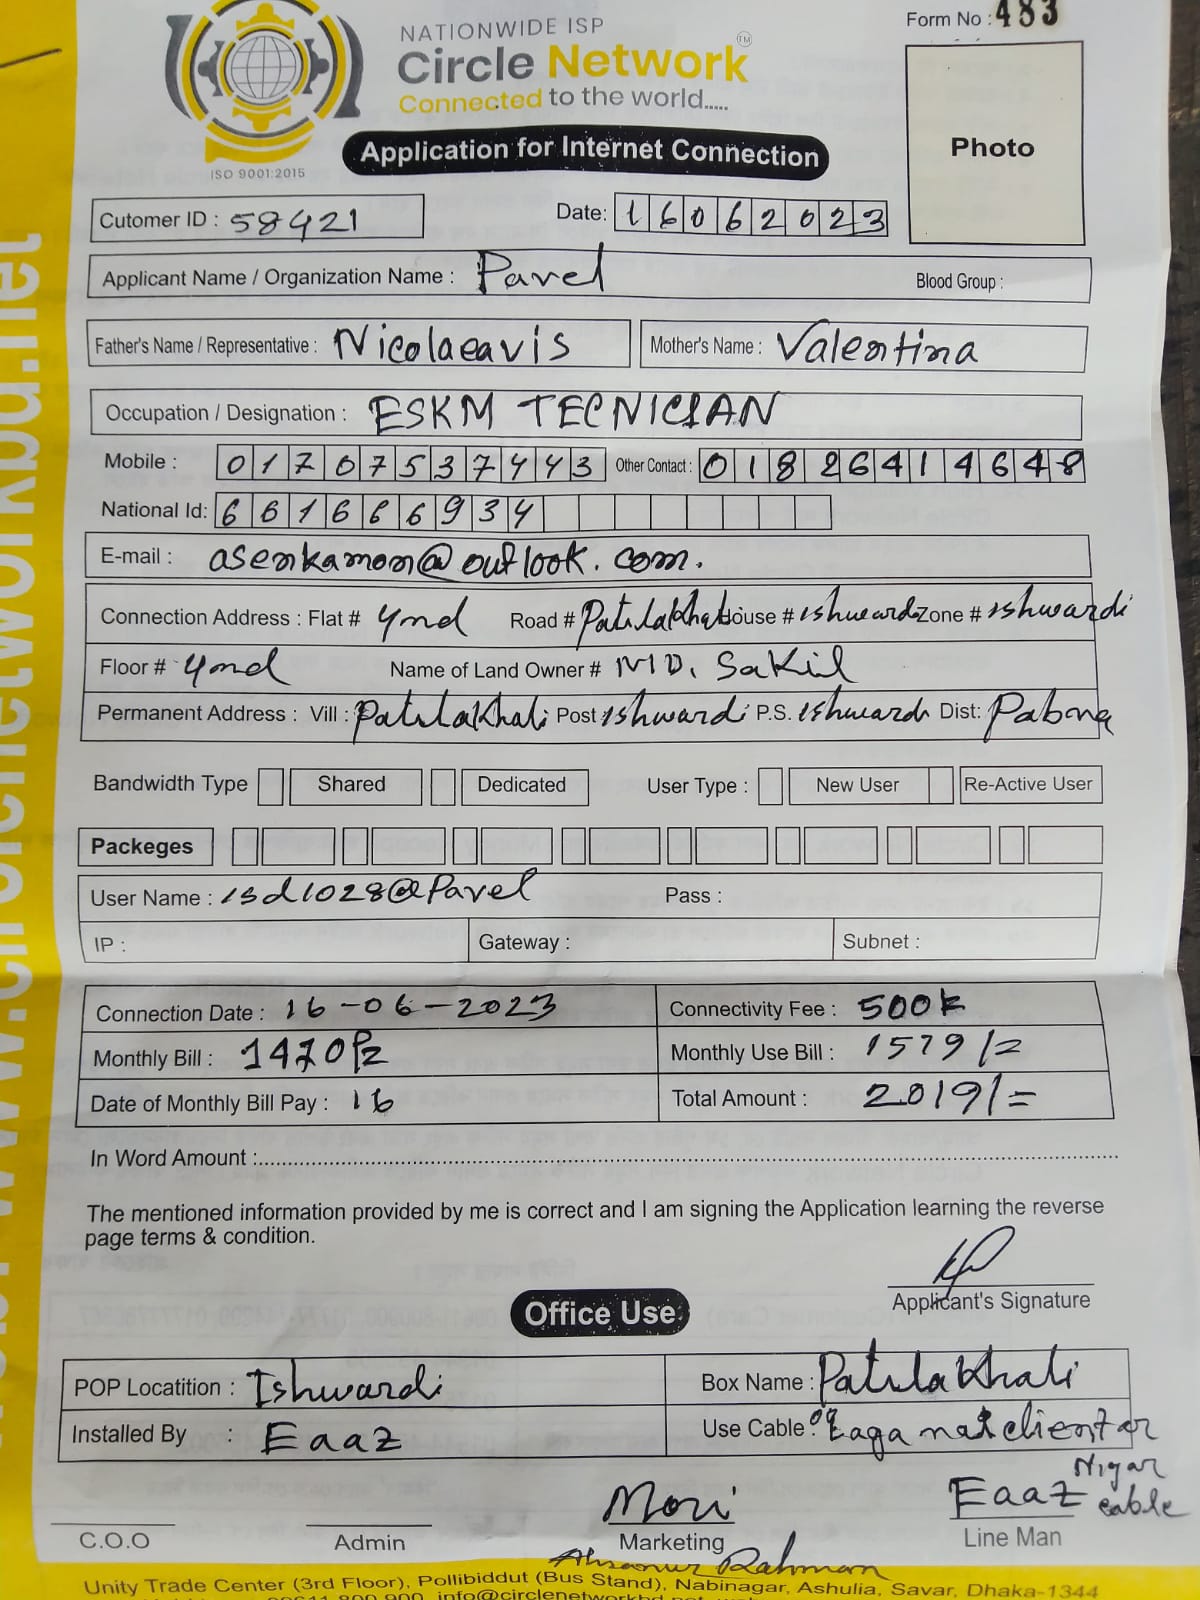 NATIONWIDE ISP
Circle Network TM
Connected to the world.....
ISO 9001:2015
Form No : 483
Application for Internet Connection
Photo
Cutomer ID : 58421
Date: 16062023
Applicant Name / Organization Name : Pavel
Blood Group :
Father's Name / Representative : Nicolaeavis
Mother's Name : Valentina
Occupation / Designation : ESKM TECNICIAN
Mobile : 01707537443 Other Contact : 01826414648
National Id: 6616666934
E-mail : asenkamon@outlook.com.
Connection Address : Flat # 4nd Road # Patilakhali House # ishwardi Zone # ishwardi
Floor # 4nd Name of Land Owner # MD. Sakil
Permanent Address : Vill : Patilakhali Post ishwardi P.S. ishwardi Dist: Pabna
Bandwidth Type Shared Dedicated User Type : New User Re-Active User
Packeges
User Name : isd1028@Pavel Pass :
IP : Gateway : Subnet :
Connection Date : 16-06-2023 Connectivity Fee : 500
Monthly Bill : 1470 Monthly Use Bill : 1519/=
Date of Monthly Bill Pay : 16 Total Amount : 2019/=
In Word Amount :
The mentioned information provided by me is correct and I am signing the Application learning the reverse
page terms & condition.
Applicant's Signature
Office Use
POP Locatition : Ishwardi Box Name : Patilakhali
Installed By : Eaaz Use Cable :
Mori Eaaz Nigar cable
C.O.O Admin Marketing Line Man
Ahsanur Rahman
Unity Trade Center (3rd Floor), Pollibiddut (Bus Stand), Nabinagar, Ashulia, Savar, Dhaka-1344
www.circlenetworkbd.net